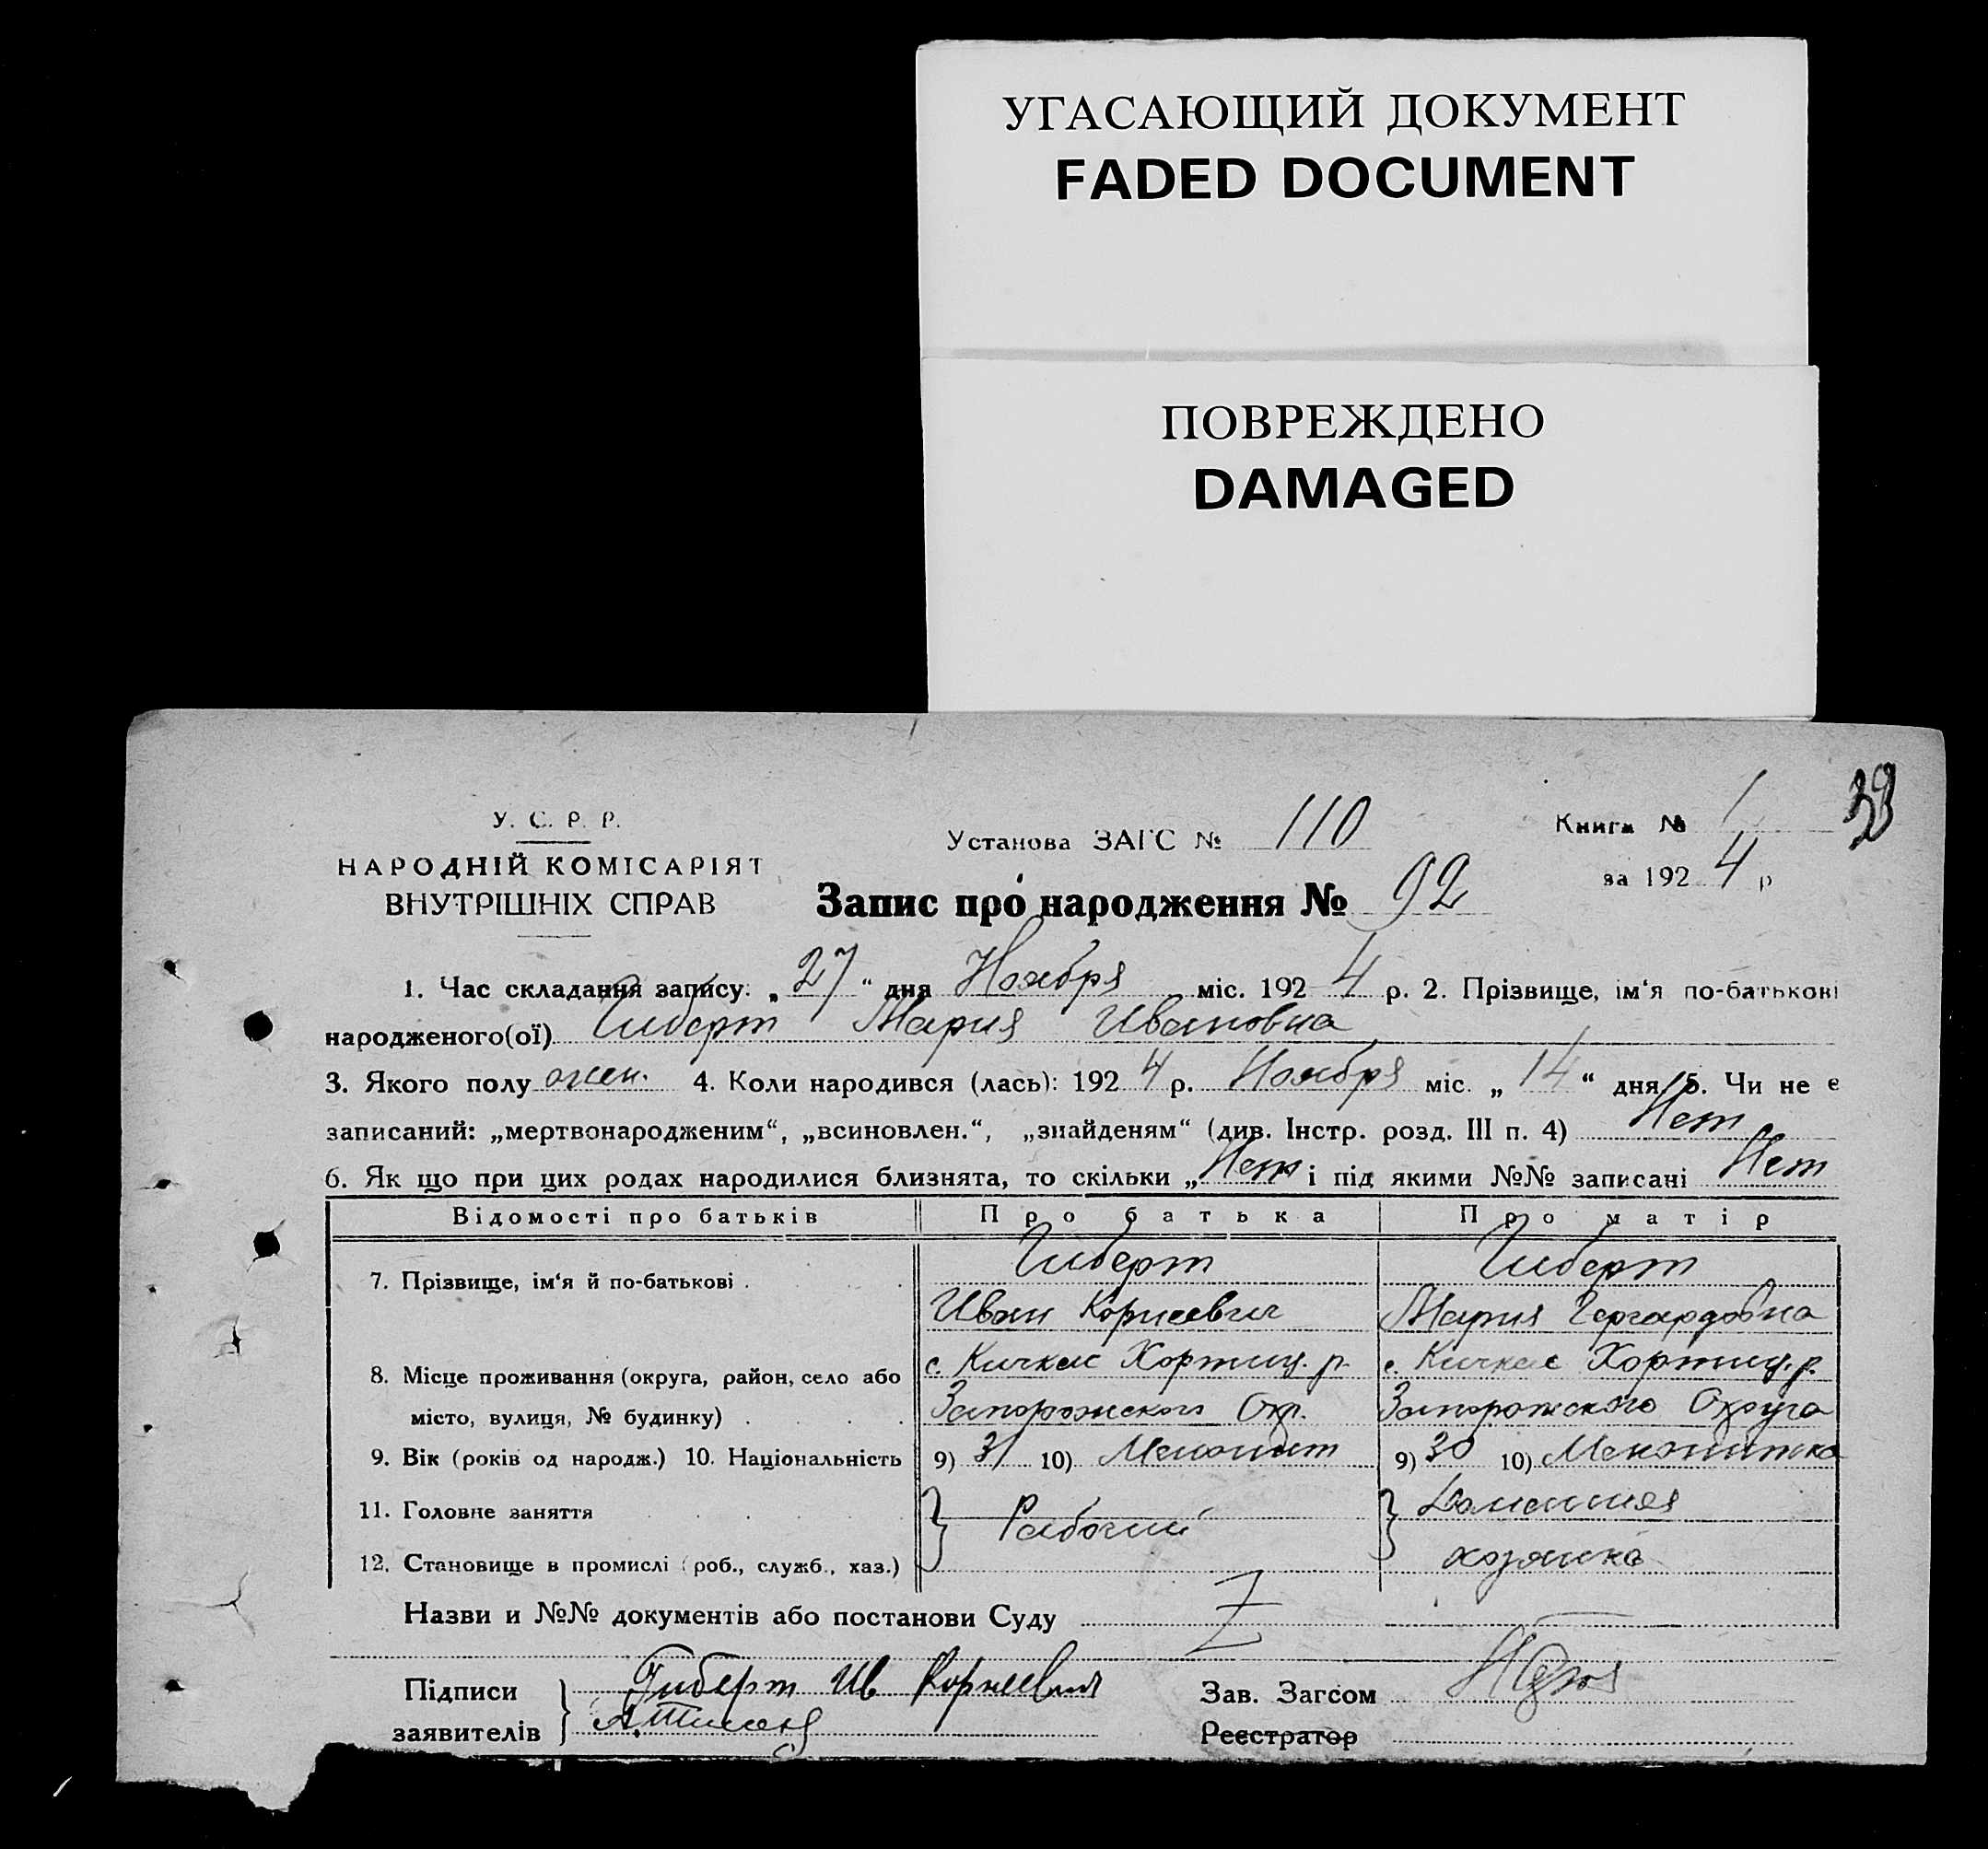 УГАСАЮЩИЙ ДОКУМЕНТ
FADED DOCUMENT
ПОВРЕЖДЕНО
DAMAGED
У. С. Р. Р.
НАРОДНІЙ КОМІСАРІЯТ
ВНУТРІШНІХ СПРАВ
Установа ЗАГС № 110
Книга № 1
за 1924 р
Запис про народження № 92
1. Час складання запису: „27“ дня Ноября міс. 1924 р. 2. Прізвище, ім‘я по-батькові
народженого(ої) Гиберт Мария Ивановна
3. Якого полу жен. 4. Коли народився (лась): 1924 р. Ноября міс. „14“ дня 5. Чи не є
записаний: „мертвонародженим“, „всиновлен.“, „знайденям“ (див. Інстр. розд. III п. 4) Нет
6. Як що при цих родах народилися близнята, то скільки „Нет“ і під якими №№ записані Нет
Відомості про батьків Про батька Про матір
7. Прізвище, ім‘я й по-батькові . Гиберт Гиберт
Иван Корнеевич Мария Гергардовна
8. Місце проживання (округа, район, село або с. Кичкас Хортиц. р. с. Кичкас Хортиц. р.
місто, вулиця, № будинку) . . . . Запорожского Окр. Запорожского Округа
9. Вік (років од народж.) 10. Національність 9) 31 10) Менонит 9) 30 10) Менонитка
11. Головне заняття Рабочий Домашняя
12. Становище в промислі (роб., служб., хаз.) хозяйка
Назви и №№ документів або постанови Суду Z
Підписи Гиберт Ив Корнеевич Зав. Загсом
заявителів Реєстратор